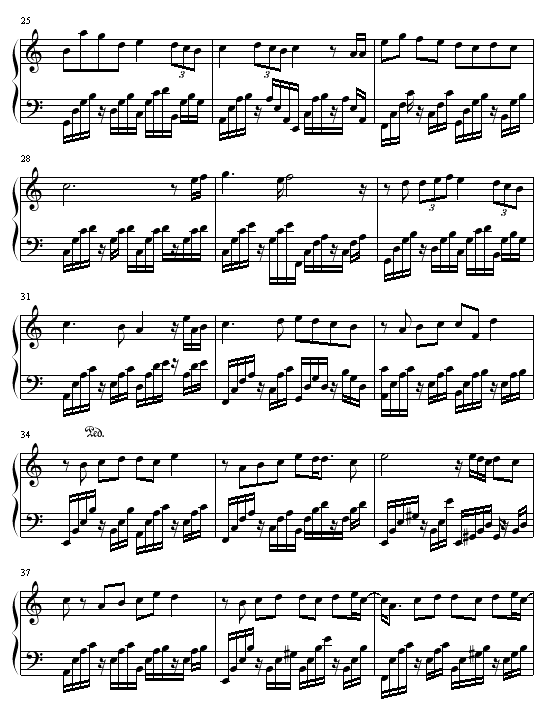 25
3
3
3
28
3
3
31
34
Ped.
37